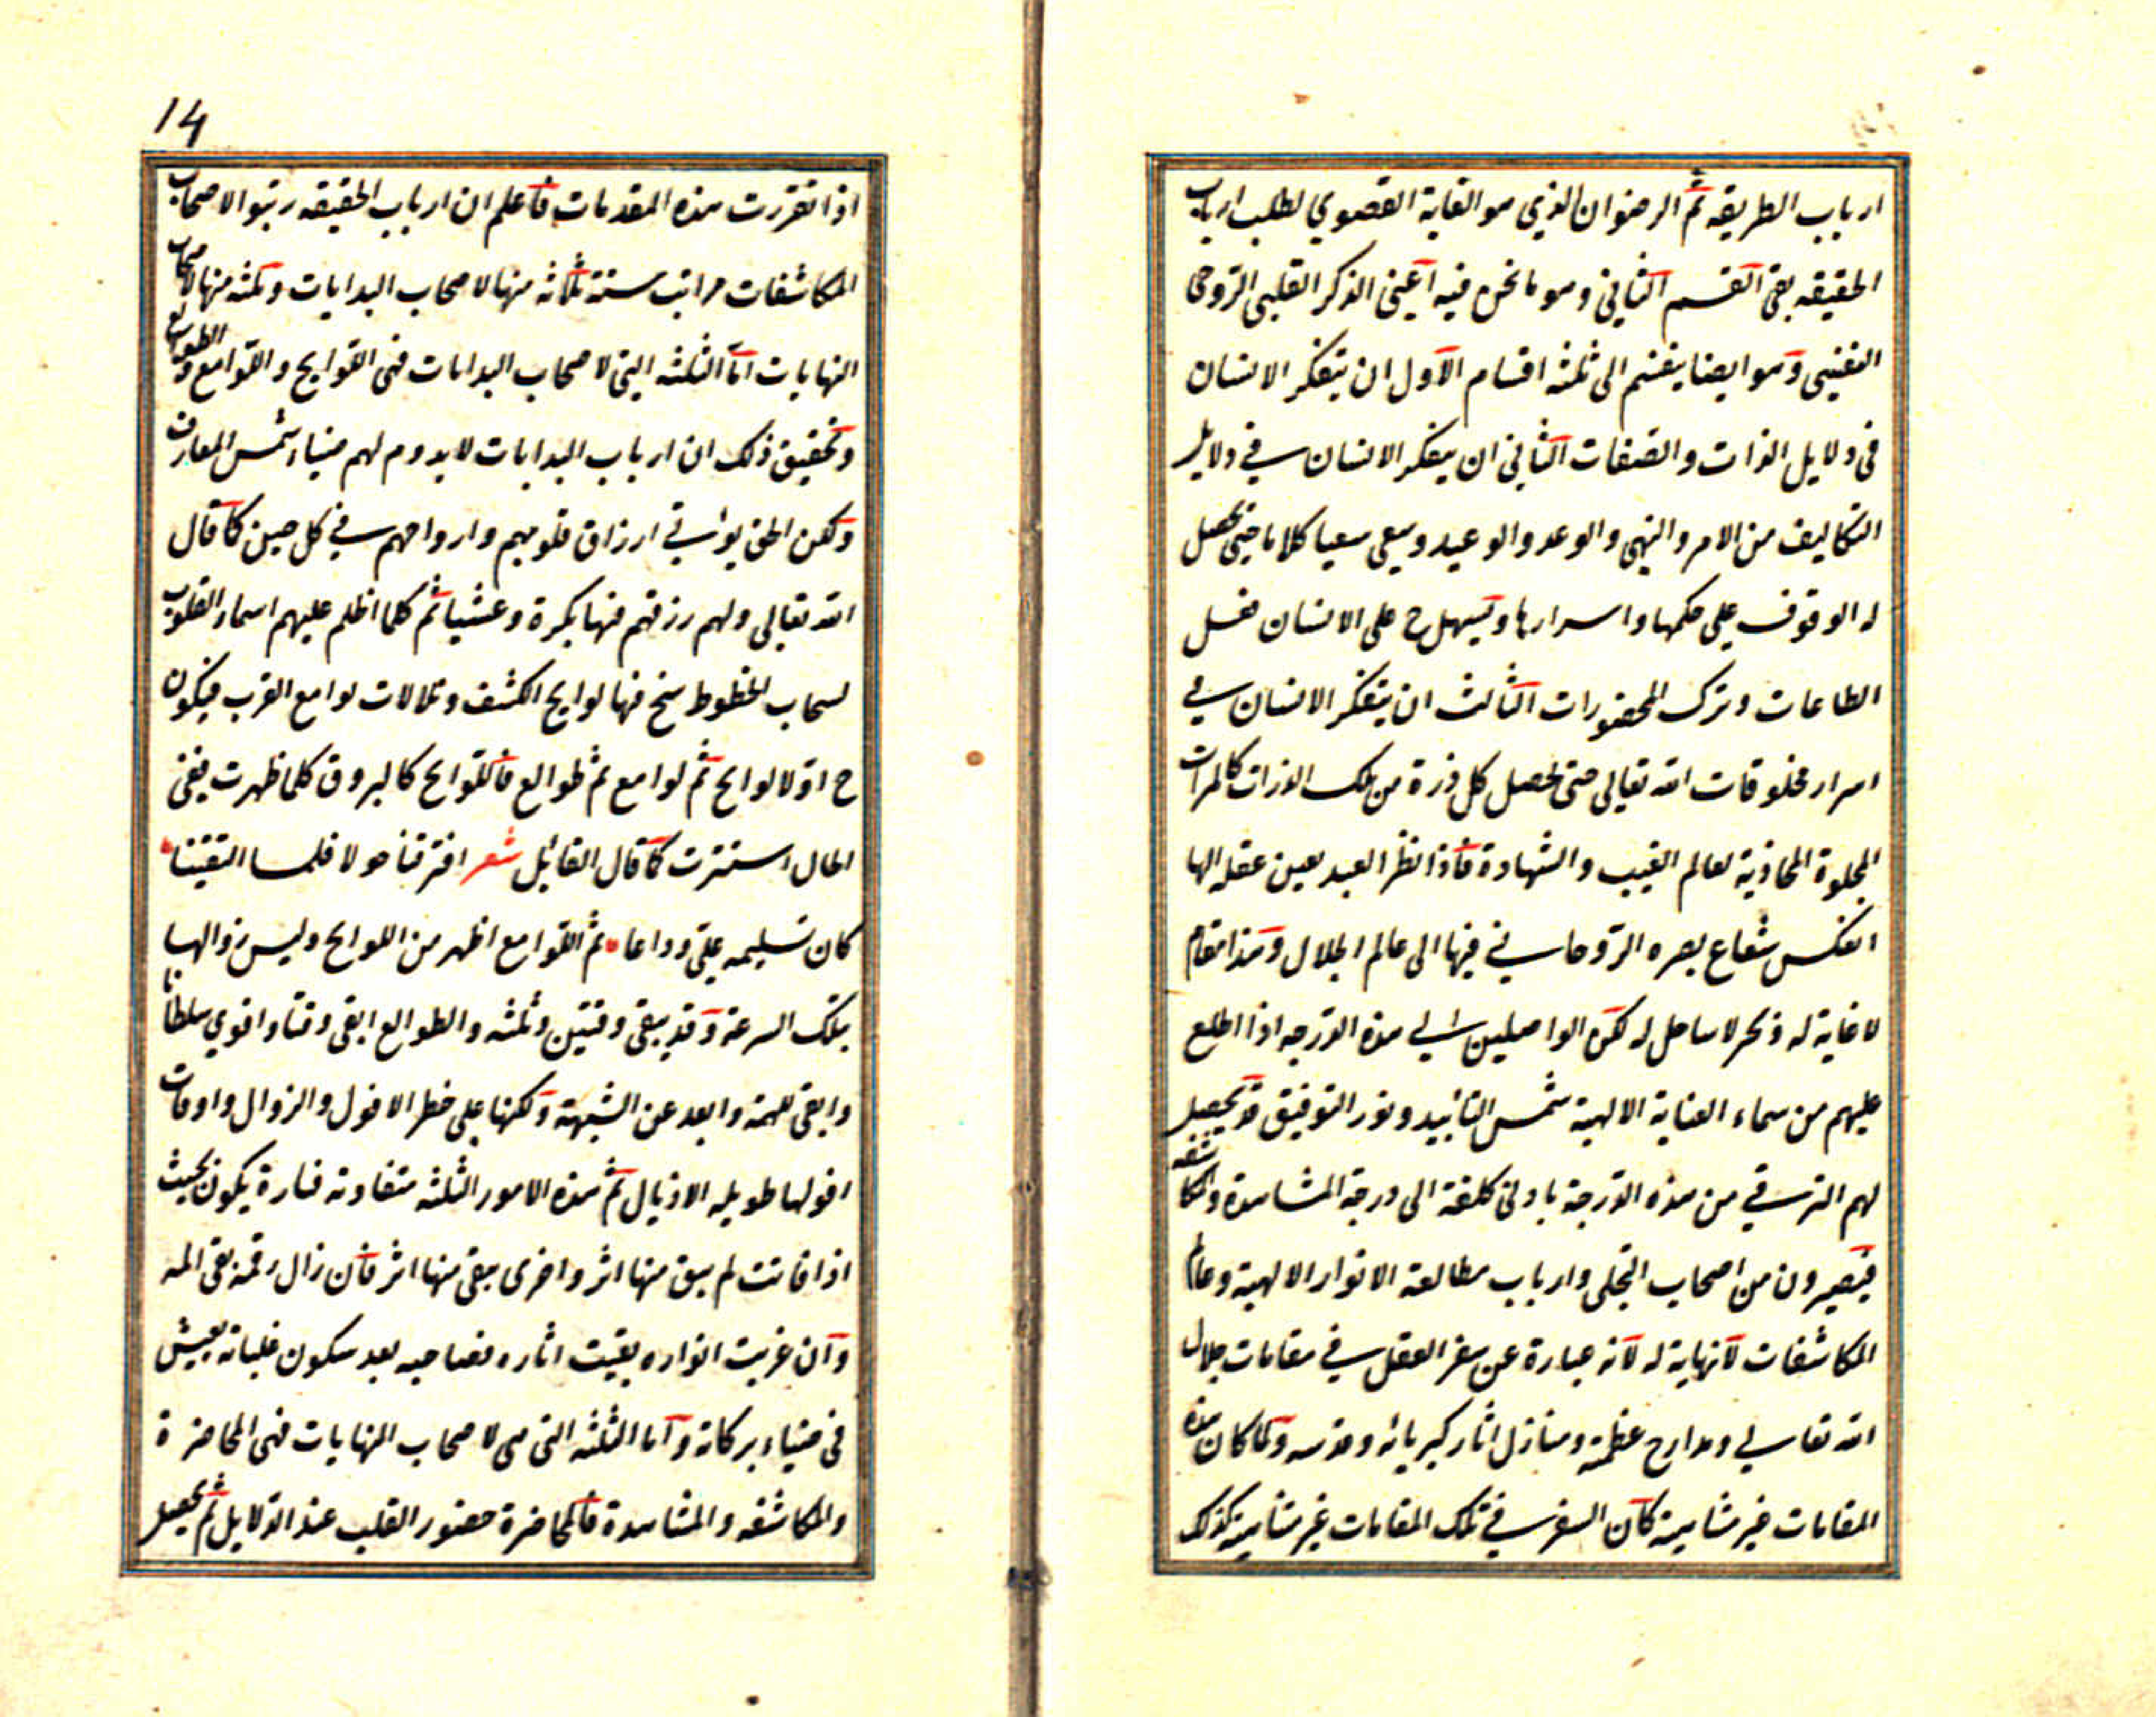 ارباب الطريقه ثم الرضوان الذي هو الغاية القصوي لطلب ارباب
الحقيقه بقي القسم الثاني وهو ما نحن فيه اعني الذكر القلبي الروحي
النفيسي وهو ايضا ينقسم الى ثلثه اقسام الاول ان يتفكر الانسان
في دلايل الذات والصفات الثاني ان يتفكر الانسان في دلايل
التكاليف من الامر والنهي والوعد والوعيد ويعي سعيا كلاما حتى يحصل
له الوقوف على حكمها واسرارها ويسهل ح على الانسان فعل
الطاعات وترك المحضورات الثالث ان يتفكر الانسان في
اسرار مخلوقات الله تعالى حتى تحصل كل ذرة من تلك الذرات كالمرات
المجلوة المحاذية لعالم الغيب والشهادة فاذا نظر العبد بعين عقله الها
انعكس شعاع بصره الروحاني فيها الى عالم الجلال وهذا مقام
لا غاية له وبحر لا ساحل له لكن الواصلين الى هذه الدرجه اذا اطلع
عليهم من سماء العناية الالهية شمس التائيد ونور التوفيق قد يحصل
لهم الترقي من هذه الدرجة بادنى كلفة الى درجة المشاهدة والمكاشفه
فيصيرون من اصحاب التجلى وارباب مطالعة الانوار الالهية وعالم
المكاشفات لا نهاية له لانه عبارة عن سفر العقل في مقامات جلال
الله تعالى ومدارج عظمته ومنازل اثار كبريائه وقدسه ولما كان هذه
المقامات غير متناهية كان السفر في تلك المقامات غير متناهية كذلك
14
اذا تقررت هذه المقدمات فاعلم ان ارباب الحقيقه رتبوا لاصحاب
المكاشفات مراتب ستة ثلاثه منها لاصحاب البدايات وثلثه منها لاصحاب
النهايات اما الثلثه التي لاصحاب البدايات فهى اللوايح واللوامع والطوالع
وتحقيق ذلك ان ارباب البدايات لا يدوم لهم ضياء شمس المعارف
ولكن الحق يواتي ارزاق قلوبهم وارواحهم في كل حين كما قال
الله تعالى ولهم رزقهم فيها بكرة وعشيا ثم كلما اظلم عليهم اسماء القلوب
لسحاب الحظوظ سنح فيها لوايح الكشف وتلالات لوامع القرب فيكون
ح اولا لوايح ثم لوامع ثم طوالع فاللوايح كالبروق كلما ظهرت يفي
الحال استترت كما قال القايل شعر افترقنا حولا فلما التقينا
كان تسليمه علي وداعا ثم اللوامع اظهر من اللوايح وليس زوالها
بتلك السرعة وقد يبقى وقتين وثلثه والطوالع ابقى وقتا واقوي سلطانا
وابقى للهمة وابعد عن الشبهة ولكنها على خطر الافول والزوال واوقات
افولها طويله الاذيال ثم هذه الامور الثلثه متفاوته فتارة يكون بحيث
اذا فاتت لم يبق منها اثر واخرى يبقى منها اثر فان زال رقمه بقي المه
وان غربت انواره بقيت اثاره فصاحبه بعد سكون غلباته يعيش
في ضياء بركاته واما الثلثه التي هى لاصحاب النهايات فهى المحاضرة
والمكاشفه والمشاهدة فالمحاضرة حضور القلب عند الدلايل ثم يحصل